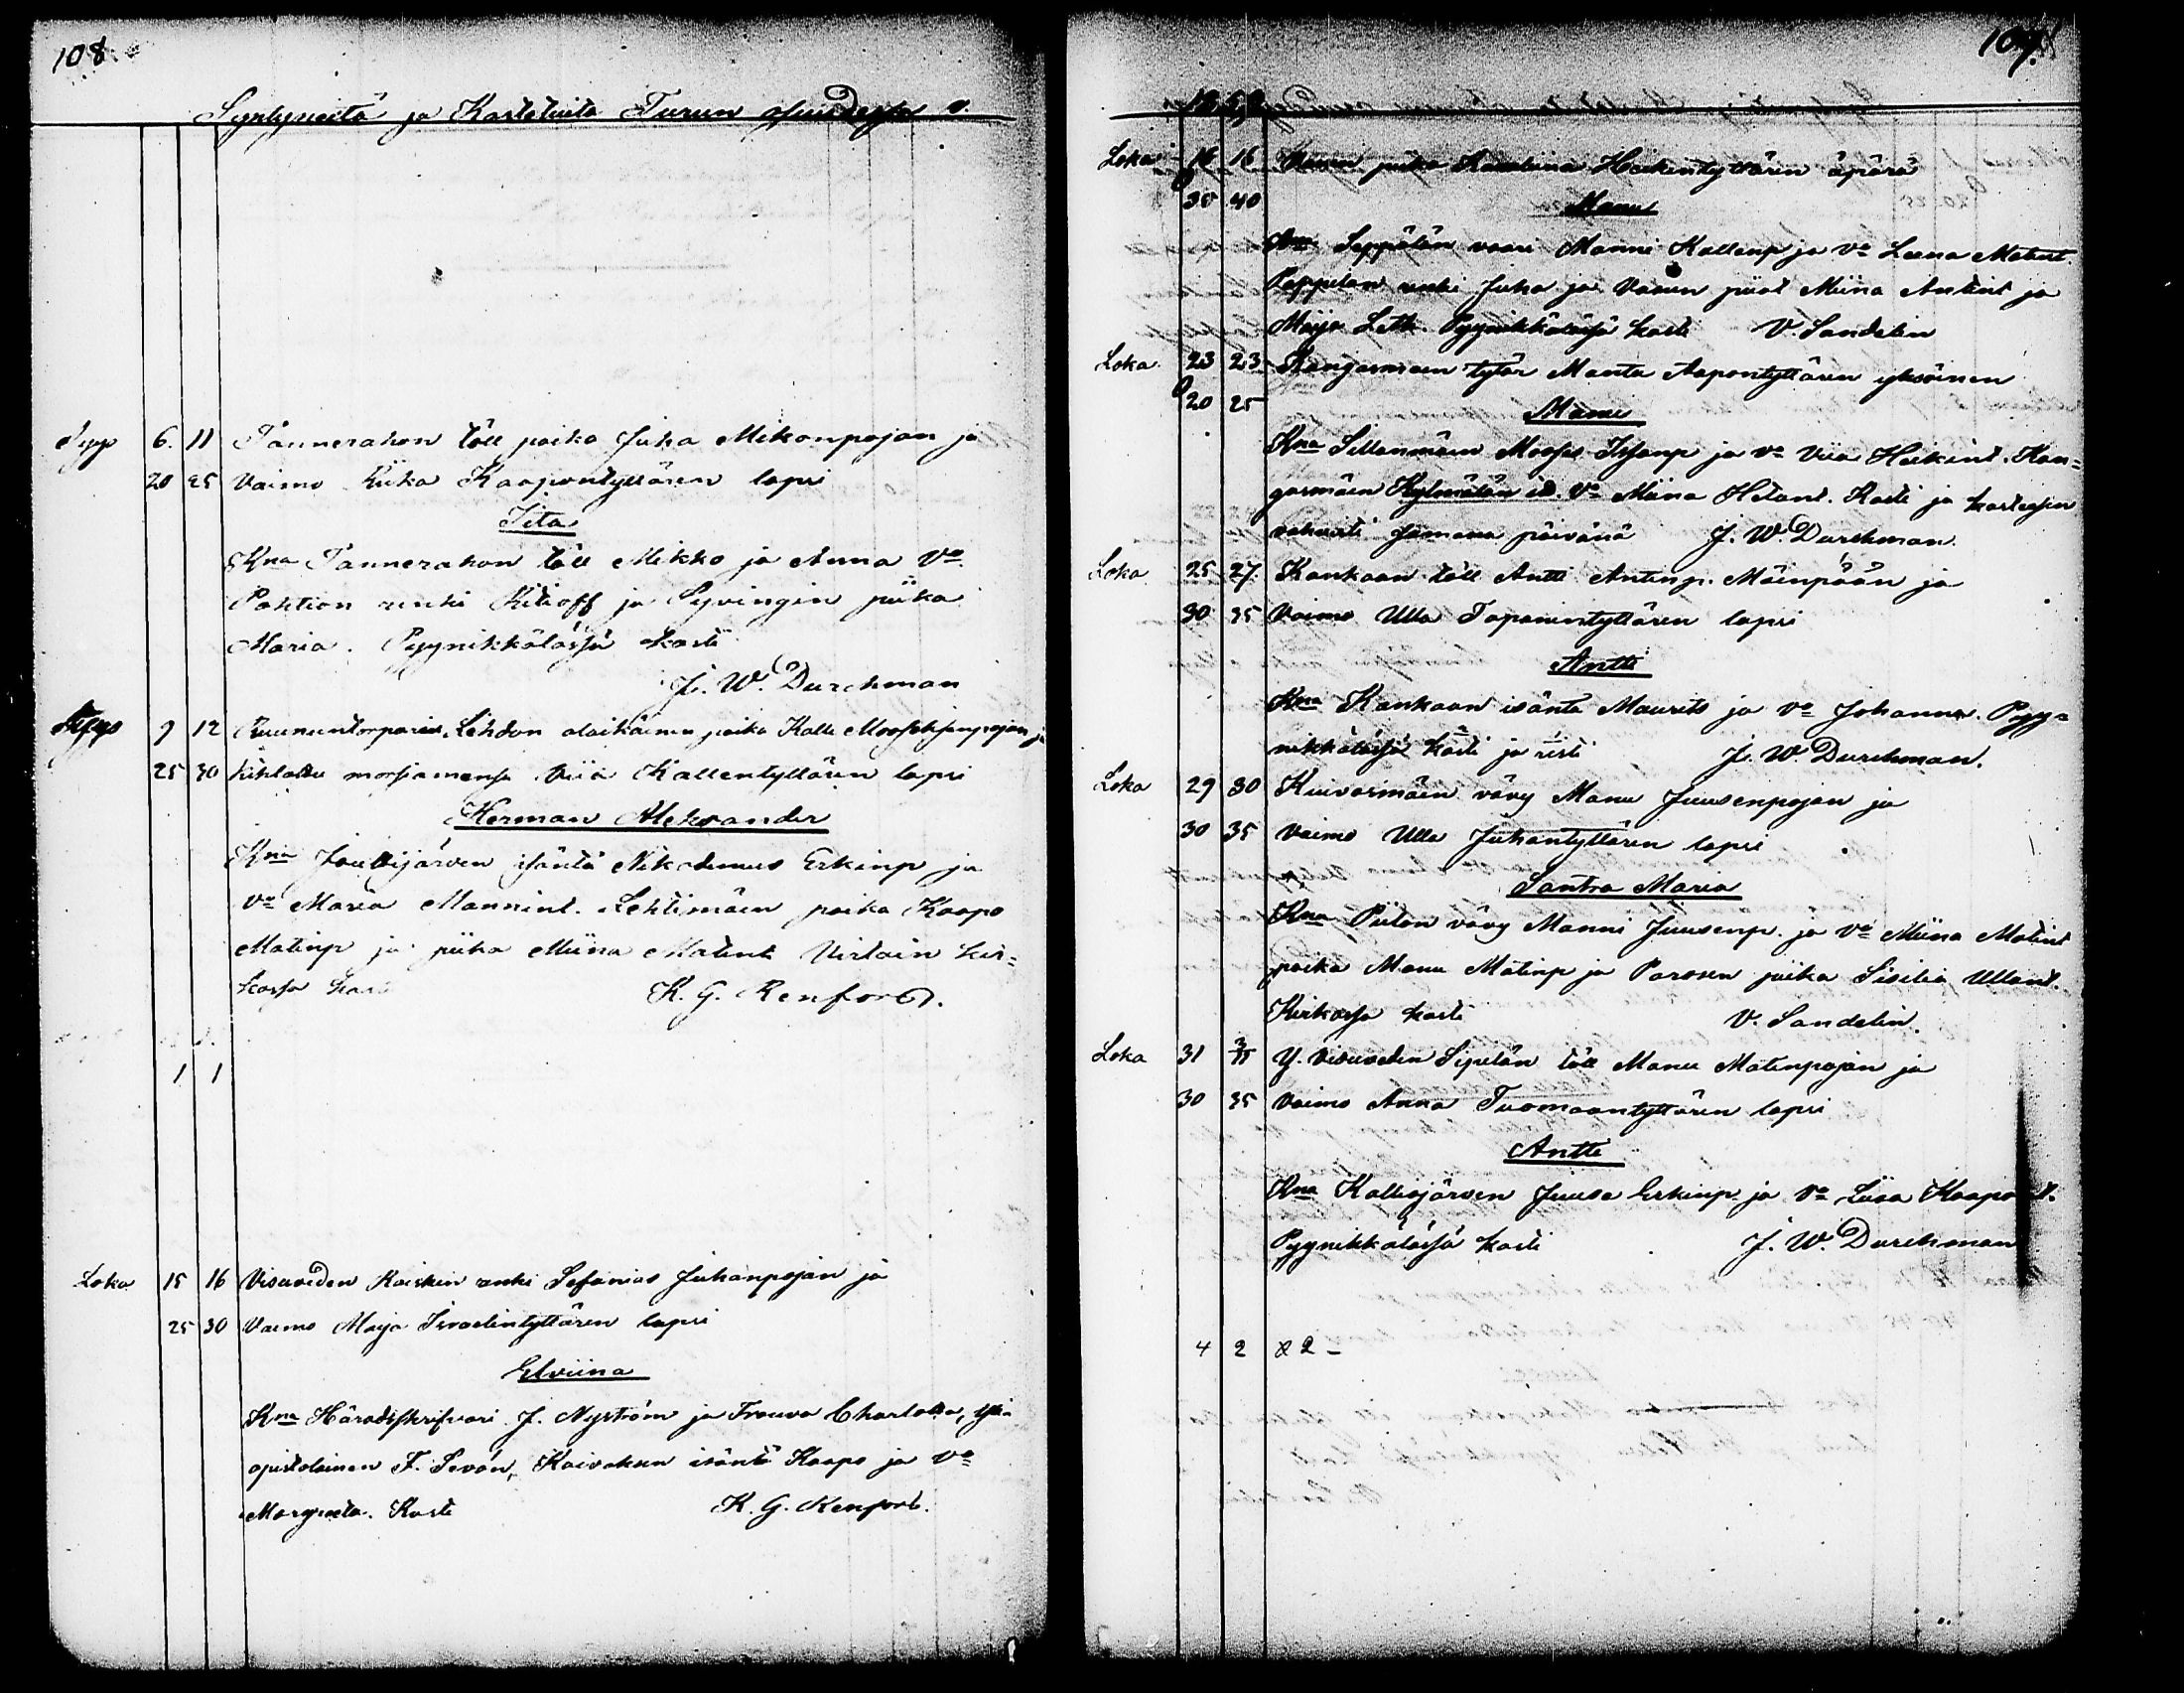 108.
Syntyneitä ja Kastetuita Turun
Syys 6. 11 Tannerahon töll poika Juha Mikonpojan ja
20 25 Vaimo Kaapontyttären lapsi
Iita
Kna Tannerahon töll Mikko ja Anna Vo
renki ja piika
Maria. Pyynikkälässä kasti
J. W. Durchman
Syys 9 12 Lehdon alaikäinen poika Kalle
25 30 kihlattu morsiamensa Viia Kallentyttären lapsi
Herman Aleksander
Kna isäntä Nikodemus Erkinp ja
vo Maria Mannint. Lehtimäen poika Kaapo
Matinp ja piika Miina Matint Virtain kir=
kossa kasti K. G. Renfors.
1 1
Loka 15 16 Visuveden Koiskin renki Sefanias Juhanpojan ja
25 30 Vaimo Maija Israelintyttären lapsi
Elviina
Kna Häradsskrifvari J. Nyström ja Frouva Charlotta, yli=
opistolainen F. Isäntä Kaapo ja vo
Margreeta. Kasti K. G. Renfors.
109.
Loka 16 16 piika Karoliina Heikintyttären äpärä
35 40 Manu
Kna Seppälän vaari Manni Kallenp ja vo Leena Matint.
Pappilan renki Juha ja piiat Miina Antint ja
Maija Leth. Pyynikkälässä kasti V. Sandelin
Loka 23 23 Kangasmäen tytär Manta Aapontyttären yksöinen
20 25 Manu
Kna Sillanmäen Mooses ja vo Viia Heikint. Kan=
gasmäen Kylmälän vo Miina Kasti ja
vahvisti samana päivänä J. W. Durchman.
Loka 25 27 Kankaan töll Antti Antinp. Mäenpään ja
30 35 Vaimo Ulla Tapanintyttären lapsi
Antti
Kna Kankaan isäntä Maurits ja vo Johanna. Pyy=
nikkälässä kasti ja risti J. W. Durchman.
Loka 29 30 Kuivasmäen vävy Manu Juusenpojan ja
30 35 Vaimo Ulla Juhantyttären lapsi
Santra Maria
Kna vävy Manni Juusenp. ja vo Miina Matint
poika Manu Matinp ja Parosen piika Sisilia Ullant.
Kirkossa kasti V. Sandelin.
Loka 31 3/11 Y. Visuveden Sipilän töll Manu Matinpojan ja
30 35 Vaimo Anna Tuomaantyttären lapsi
Antti
Kna Kalliojärven Juuse Erkinp ja vo Liisa Kaapont.
Pyynikkälässä kasti J. W. Durchman
4 2 & 2 -